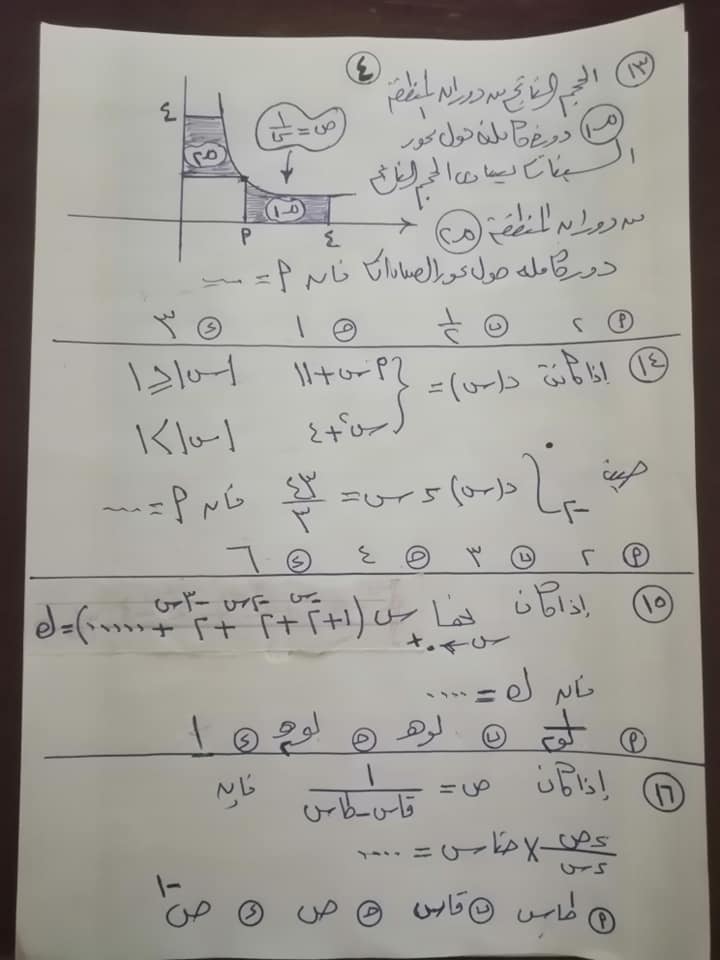 ٤
١٣ الحجم الناتج من دوران المنطقة
م١ دورة كاملة حول محور
السينات يساوى الحجم الناتج
من دوران المنطقة م٢
دورة كاملة حول محور الصادات فإن ٩ = ....
٤
ص = ١/س
م٢
م١
٩ ٤
٩ ٢ ب ١/٢ ج ١ د ٣
١٤ إذا كانت د(س) = { ٩س + ١١ |س| ≥ ١
س٢ + ٤ |س| < ١
حيث ∫ ٠ -٢ د(س) ءس = ٤٣/٣ فإن ٩ = ....
٩ ٢ ب ٣ ج ٤ د ٦
١٥ إذا كان نهـا س←٠+ س (١ + ٢^-س + ٢^-٢س + ٢^-٣س + ......) = ك
فإن ك = ....
٩ ١/لو٢ ب لوهـ ج لو٢هـ د ١
١٦ إذا كان ص = ١/(قاس - طاس) فإن
ءص/ءس × حتاس = ....
٩ طاس ب قاس ج ص د ص^-١